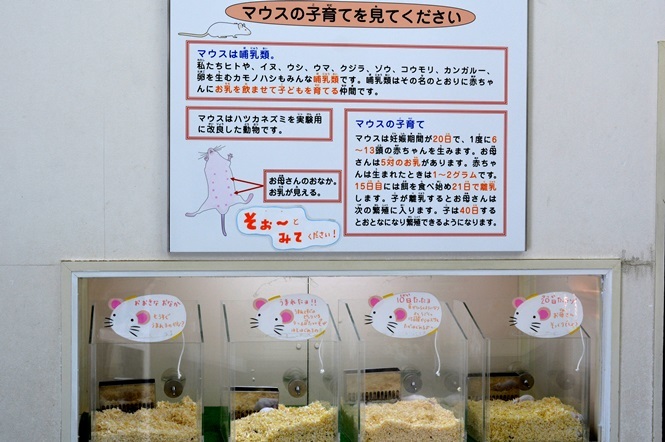 マウスの子育てを見てください
マウスは哺乳類。
私たちヒトや、イヌ、ウシ、ウマ、クジラ、ゾウ、コウモリ、カンガルー、
卵を生むカモノハシもみんな哺乳類です。哺乳類はその名のとおりに赤ちゃ
んにお乳を飲ませて子どもを育てる仲間です。
マウスはハツカネズミを実験用
に改良した動物です。
お母さんのおなか。
お乳が見える。
そぉ〜と
みて
ください!
マウスの子育て
マウスは妊娠期間が20日で、1度に6
〜13頭の赤ちゃんを生みます。お母
さんは5対のお乳があります。赤ちゃ
んは生まれたときは1〜2グラムです。
15日目には餌を食べ始め21日で離乳
します。子が離乳するとお母さんは
次の繁殖に入ります。子は40日する
とおとなになり繁殖できるようになります。
おおきなおなか
うまれたョ!!
10日たったョ
20日たったョ